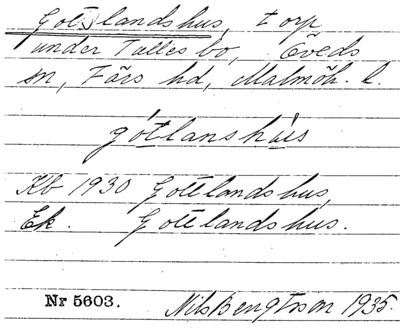 Gottlandshus, torp
under Tullesbo, Öveds
sn, Färs hd, Malmöh. l.
gótlanshùs
Kb 1930 Gottlandshus,
Ek. Gottlandshus.
Nr 5603. Nils Bengtsson 1935.